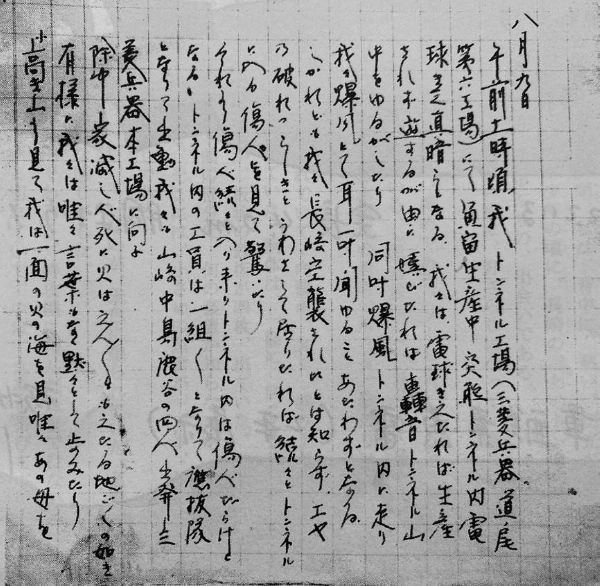 八月九日
午前十一時頃、我トンネル工場(三菱兵器道尾
第六工場)にて魚雷生産中突然トンネル内電
球きえ真暗となる 我々は電球きえたれば生産
されず遊するが由に喜びたれば轟音トンネル山
中をゆるがしたり 同時爆風トンネル内に走り
我々爆風にて耳一時聞ゆることあたわずとなる
しかれども我々長崎空襲されたとは知らず、エヤ
の破れつらんとうわさして居りたれば続々とトンネル
に入る傷人を見て驚いたり
それより傷人続々と入り来りトンネル内は傷人だらけと
なる トンネル内の工員は一組一組となりて應抜隊
となりて出動我々も山崎中島渋谷の四人出発し三
菱兵器本工場に向ふ
除中家滅し人死に火はえんえんもえたる地ごくの如き
有様に我々は唯々言葉もなく黙々として止のみたり
小高き山より見て我は一面の火の海を見唯々あの母を